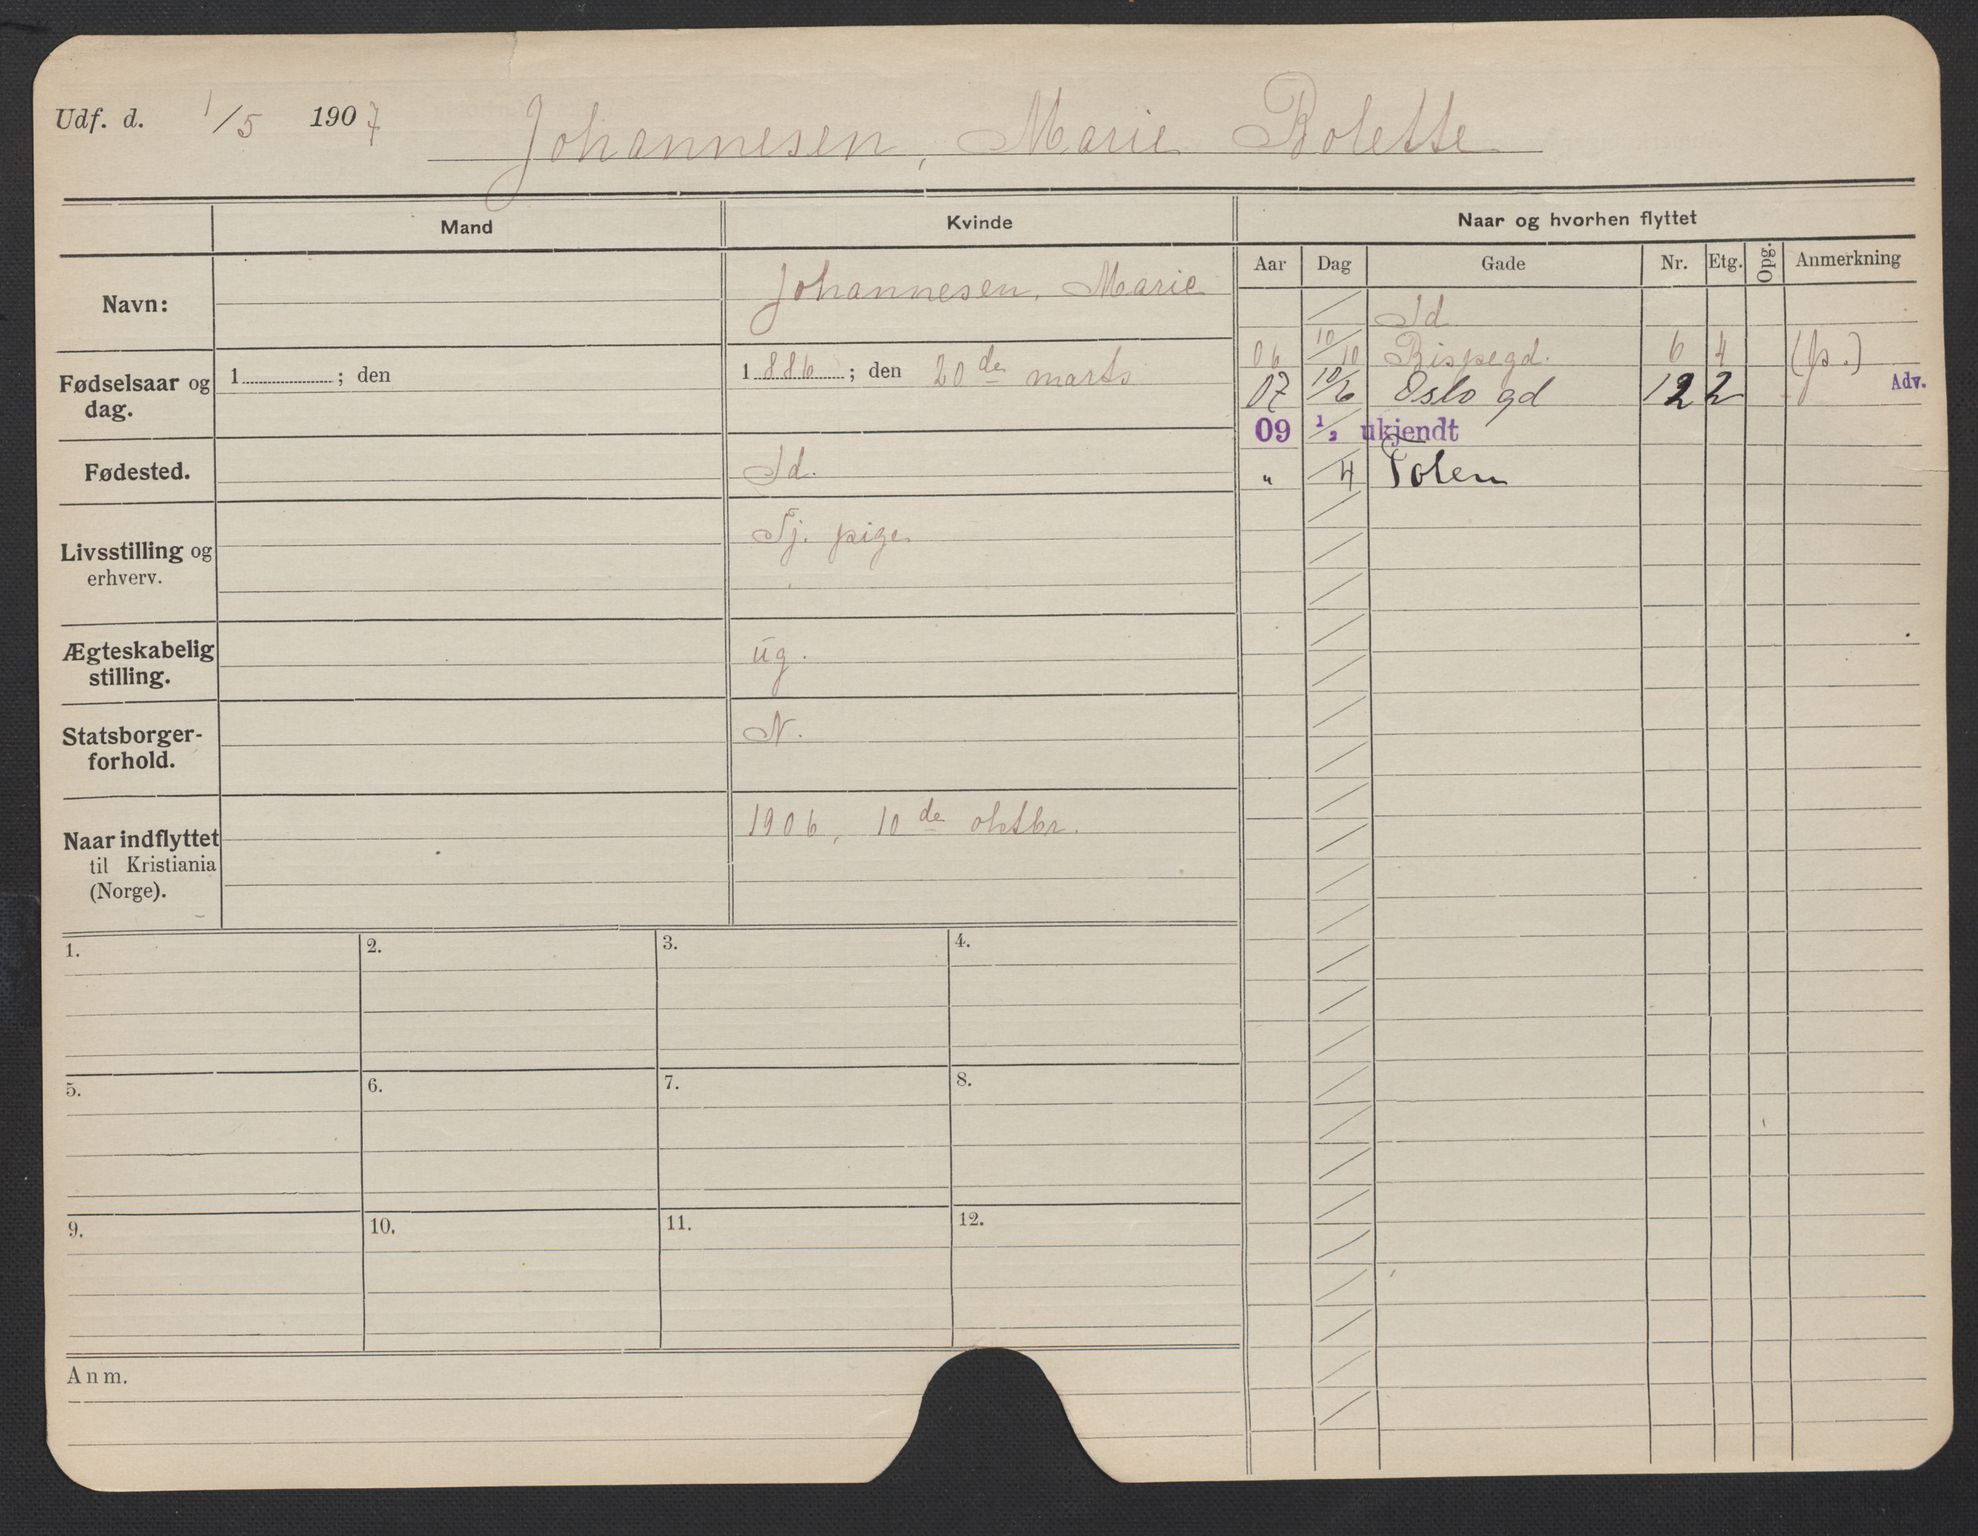 Udf. d. 1/5 1907 Johannesen, Marie Bolette
Mand
Kvinde
Naar og hvorhen flyttet
Aar Dag Gade Nr. Etg. Opg. Anmerkning
Navn:
Johannesen, Marie
Fødselsaar og
dag.
1 ; den
1886 ; den 20de marts
Fødested.
Id.
Livsstilling og
erhverv.
Tj. pige.
Ægteskabelig
stilling.
ug.
Statsborger-
forhold.
N.
Naar indflyttet
til Kristiania
(Norge).
1906, 10de oktbr.
Id
06 10/10 Bispegd. 6 4 (p.)
07 10/6 Oslo gd 12 2 Adv.
09 1/2 ukjendt
" / 4 Toten
1. 2. 3. 4.
5. 6. 7. 8.
9. 10. 11. 12.
Anm.